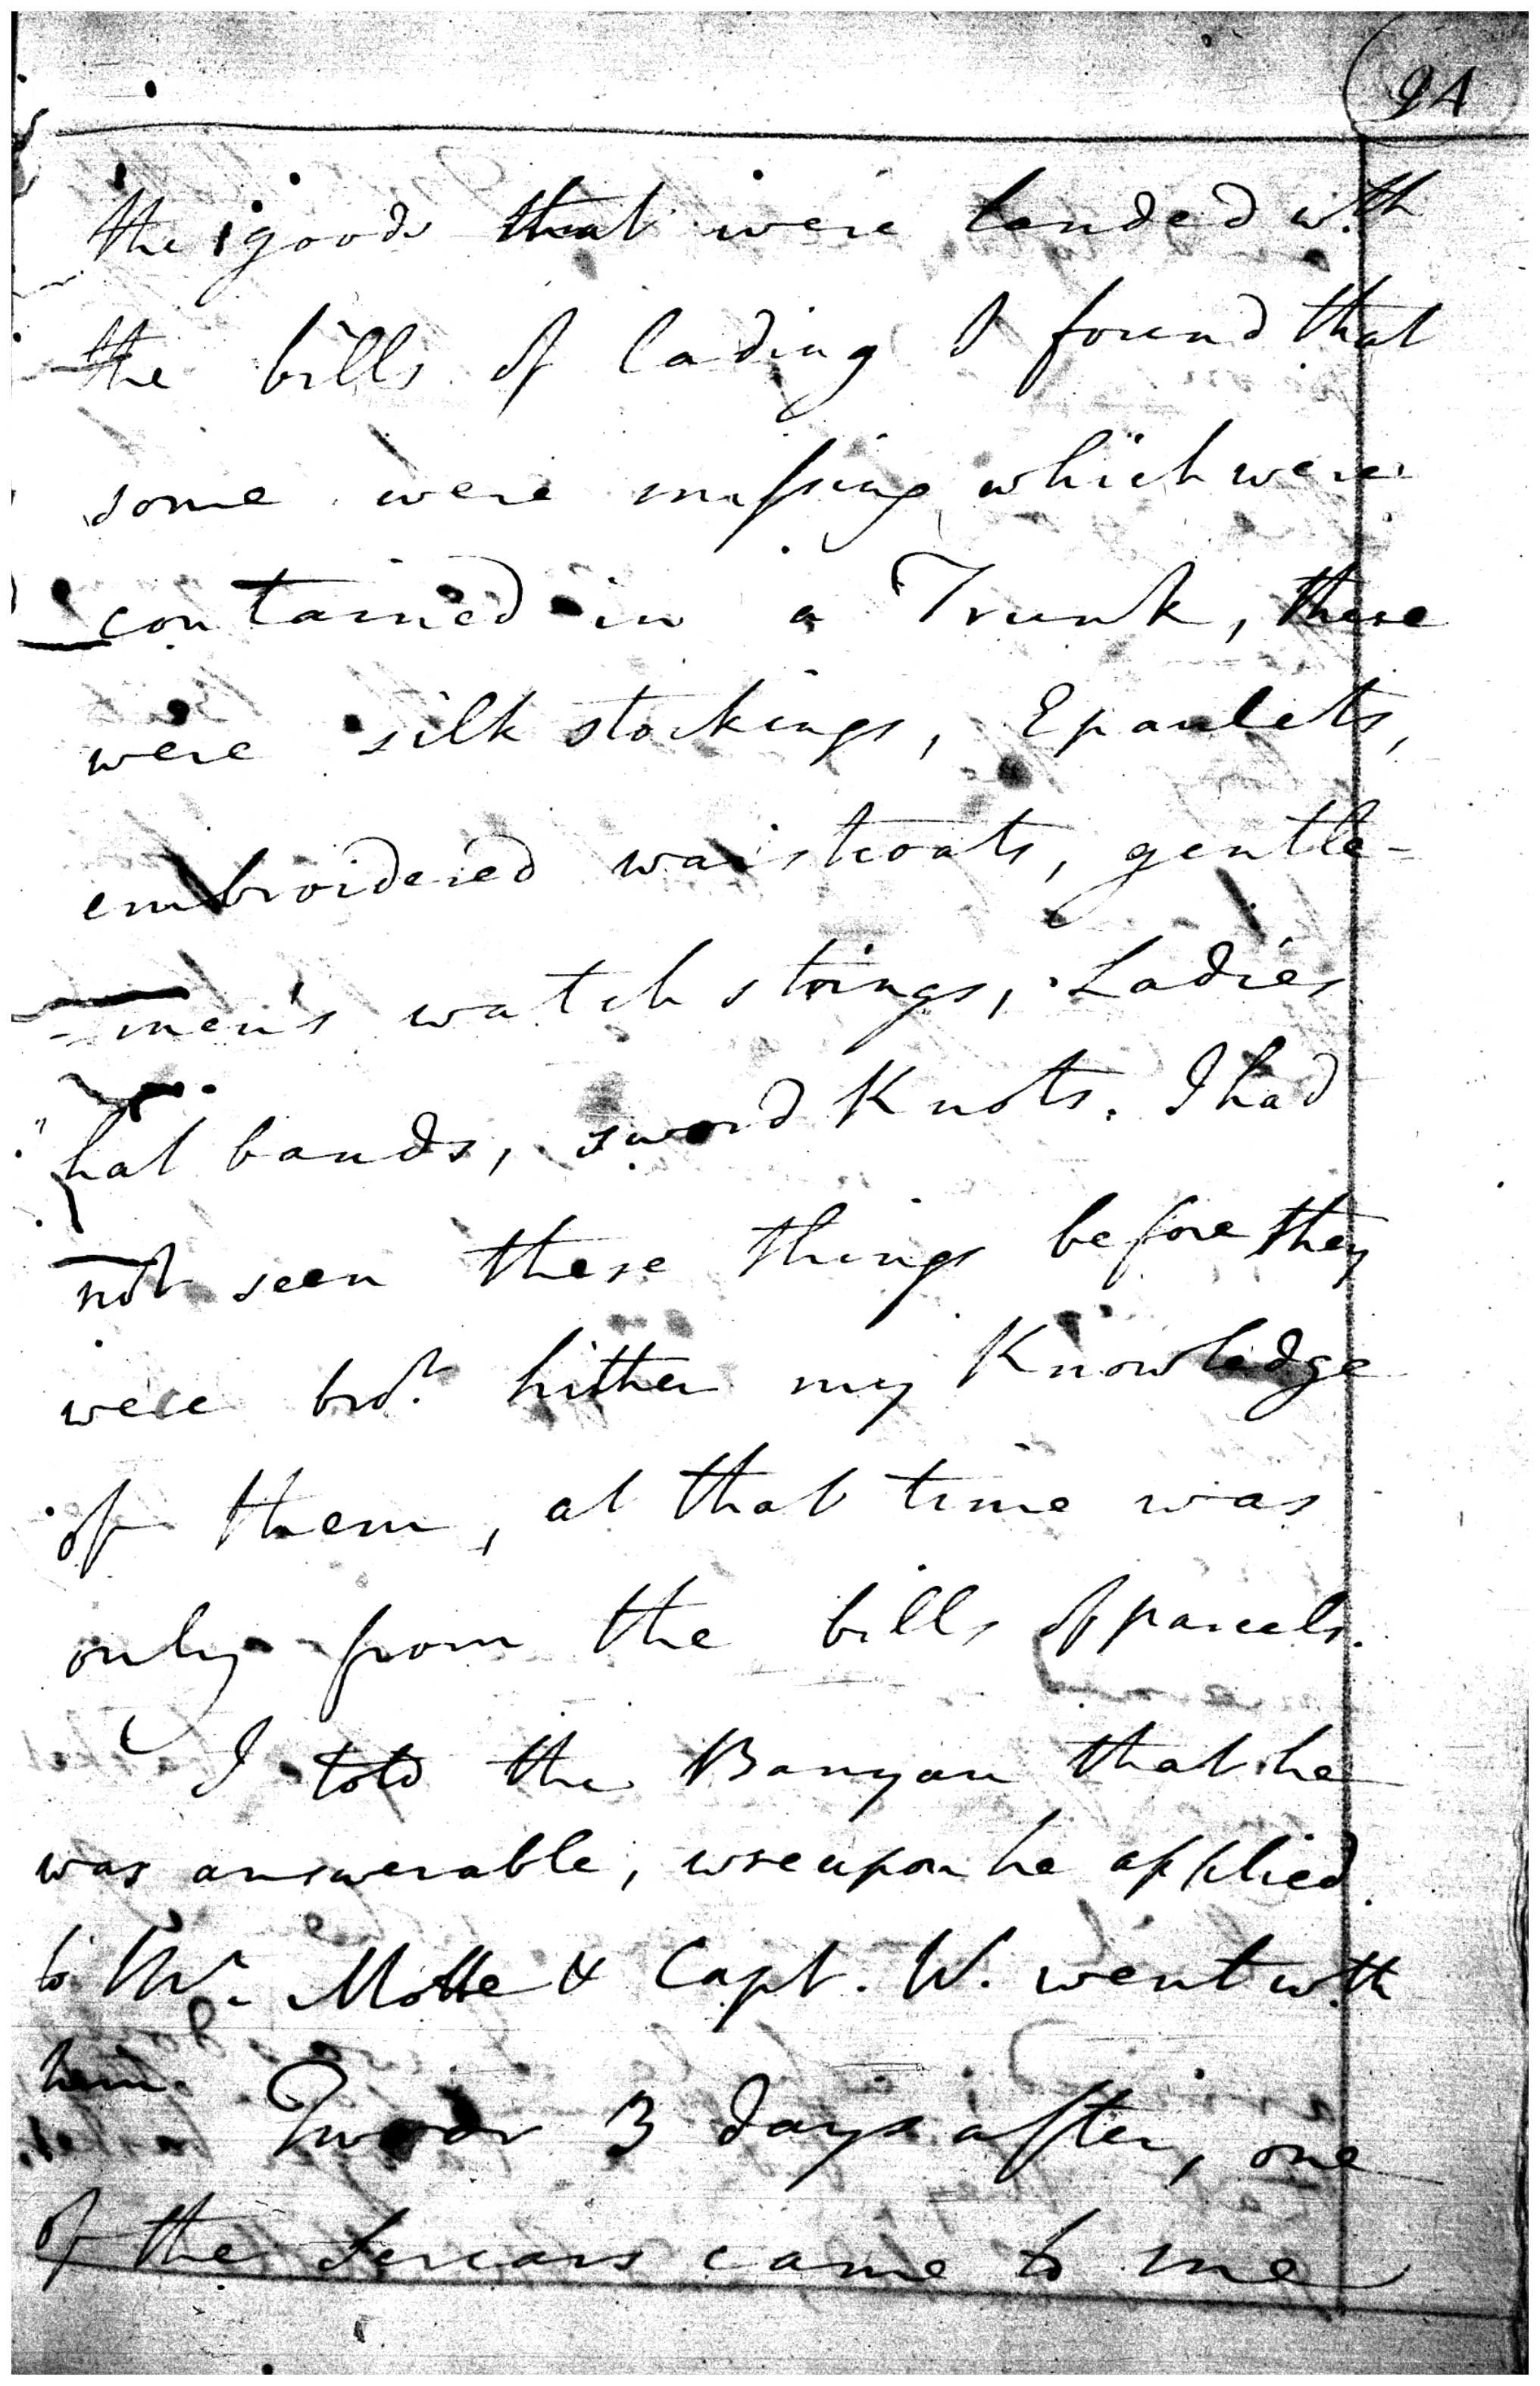 24
the goods that were landed wth
the bills of lading I found that
some were missing which were
contained in a Trunk, these
were silk stockings, Epaulets,
embroidered waistcoats, gentle-
-men's watch strings, Ladies
hat bands, sword Knots. I had
not seen these things before they
were brot. hither my Knowledge
of them, at that time was
only from the bills of parcels.
I told the Banyan that he
was answerable, wreupon he applied
to Mr. Motte & Capt. W. went wth
him. Two or 3 days after, one
of the Sercars came to me